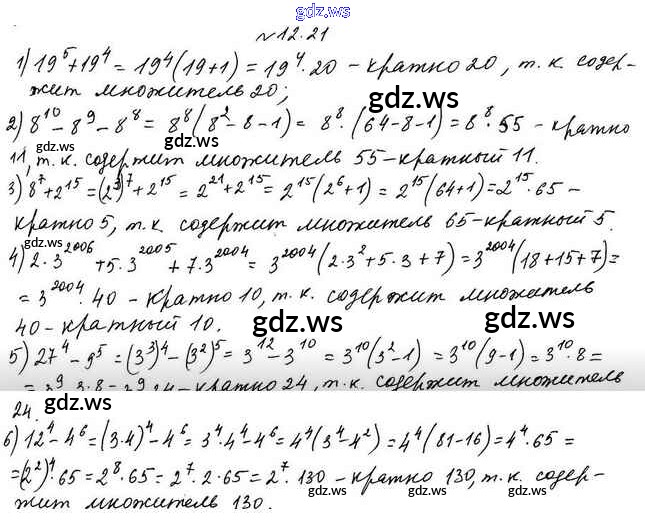 gdz.ws
№12.21
1) 19⁵+19⁴ = 19⁴(19+1) = 19⁴·20 – кратно 20, т.к. содер-
жит множитель 20;
gdz.ws
2) 8¹⁰ – 8⁹ – 8⁸ = 8⁸(8² – 8 – 1) = 8⁸·(64–8–1) = 8⁸·55 – кратно
gdz.ws
11, т.к. содержит множитель 55 – кратный 11.
3) 8⁷+2¹⁵ = (2³)⁷+2¹⁵ = 2²¹+2¹⁵ = 2¹⁵(2⁶+1) = 2¹⁵(64+1) = 2¹⁵·65 –
кратно 5, т.к. содержит множитель 65 – кратный 5.
gdz.ws gdz.ws
4) 2·3²⁰⁰⁶ + 5·3²⁰⁰⁵ + 7·3²⁰⁰⁴ = 3²⁰⁰⁴(2·3²+5·3+7) = 3²⁰⁰⁴(18+15+7) =
= 3²⁰⁰⁴·40 – кратно 10, т.к. содержит множитель
40 – кратный 10.
gdz.ws gdz.ws
5) 27⁴ – 9⁵ = (3³)⁴ – (3²)⁵ = 3¹² – 3¹⁰ = 3¹⁰(3²–1) = 3¹⁰(9–1) = 3¹⁰·8 =
= 3⁹·3·8 = 3⁹·24 – кратно 24, т.к. содержит множитель
24.
gdz.ws
6) 12⁴ – 4⁶ = (3·4)⁴ – 4⁶ = 3⁴·4⁴ – 4⁶ = 4⁴(3⁴–4²) = 4⁴(81–16) = 4⁴·65 =
= (2²)⁴·65 = 2⁸·65 = 2⁷·2·65 = 2⁷·130 – кратно 130, т.к. содер-
жит множитель 130.
gdz.ws gdz.ws